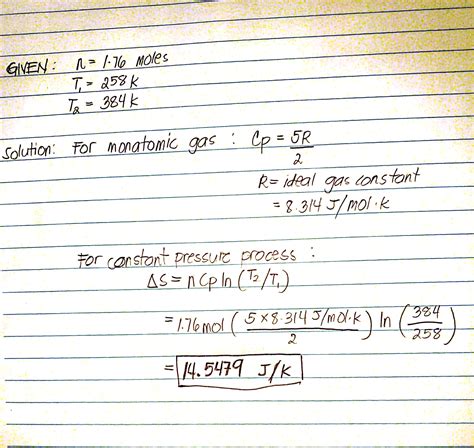 GIVEN: n = 1.76 moles
T₁ = 258 K
T₂ = 384 K
Solution: For monatomic gas : Cp = 5R/2
R = ideal gas constant
= 8.314 J/mol·K
For constant pressure process :
ΔS = n Cp ln (T₂/T₁)
= 1.76 mol (5 × 8.314 J/mol·K / 2) ln (384/258)
= 14.5479 J/K